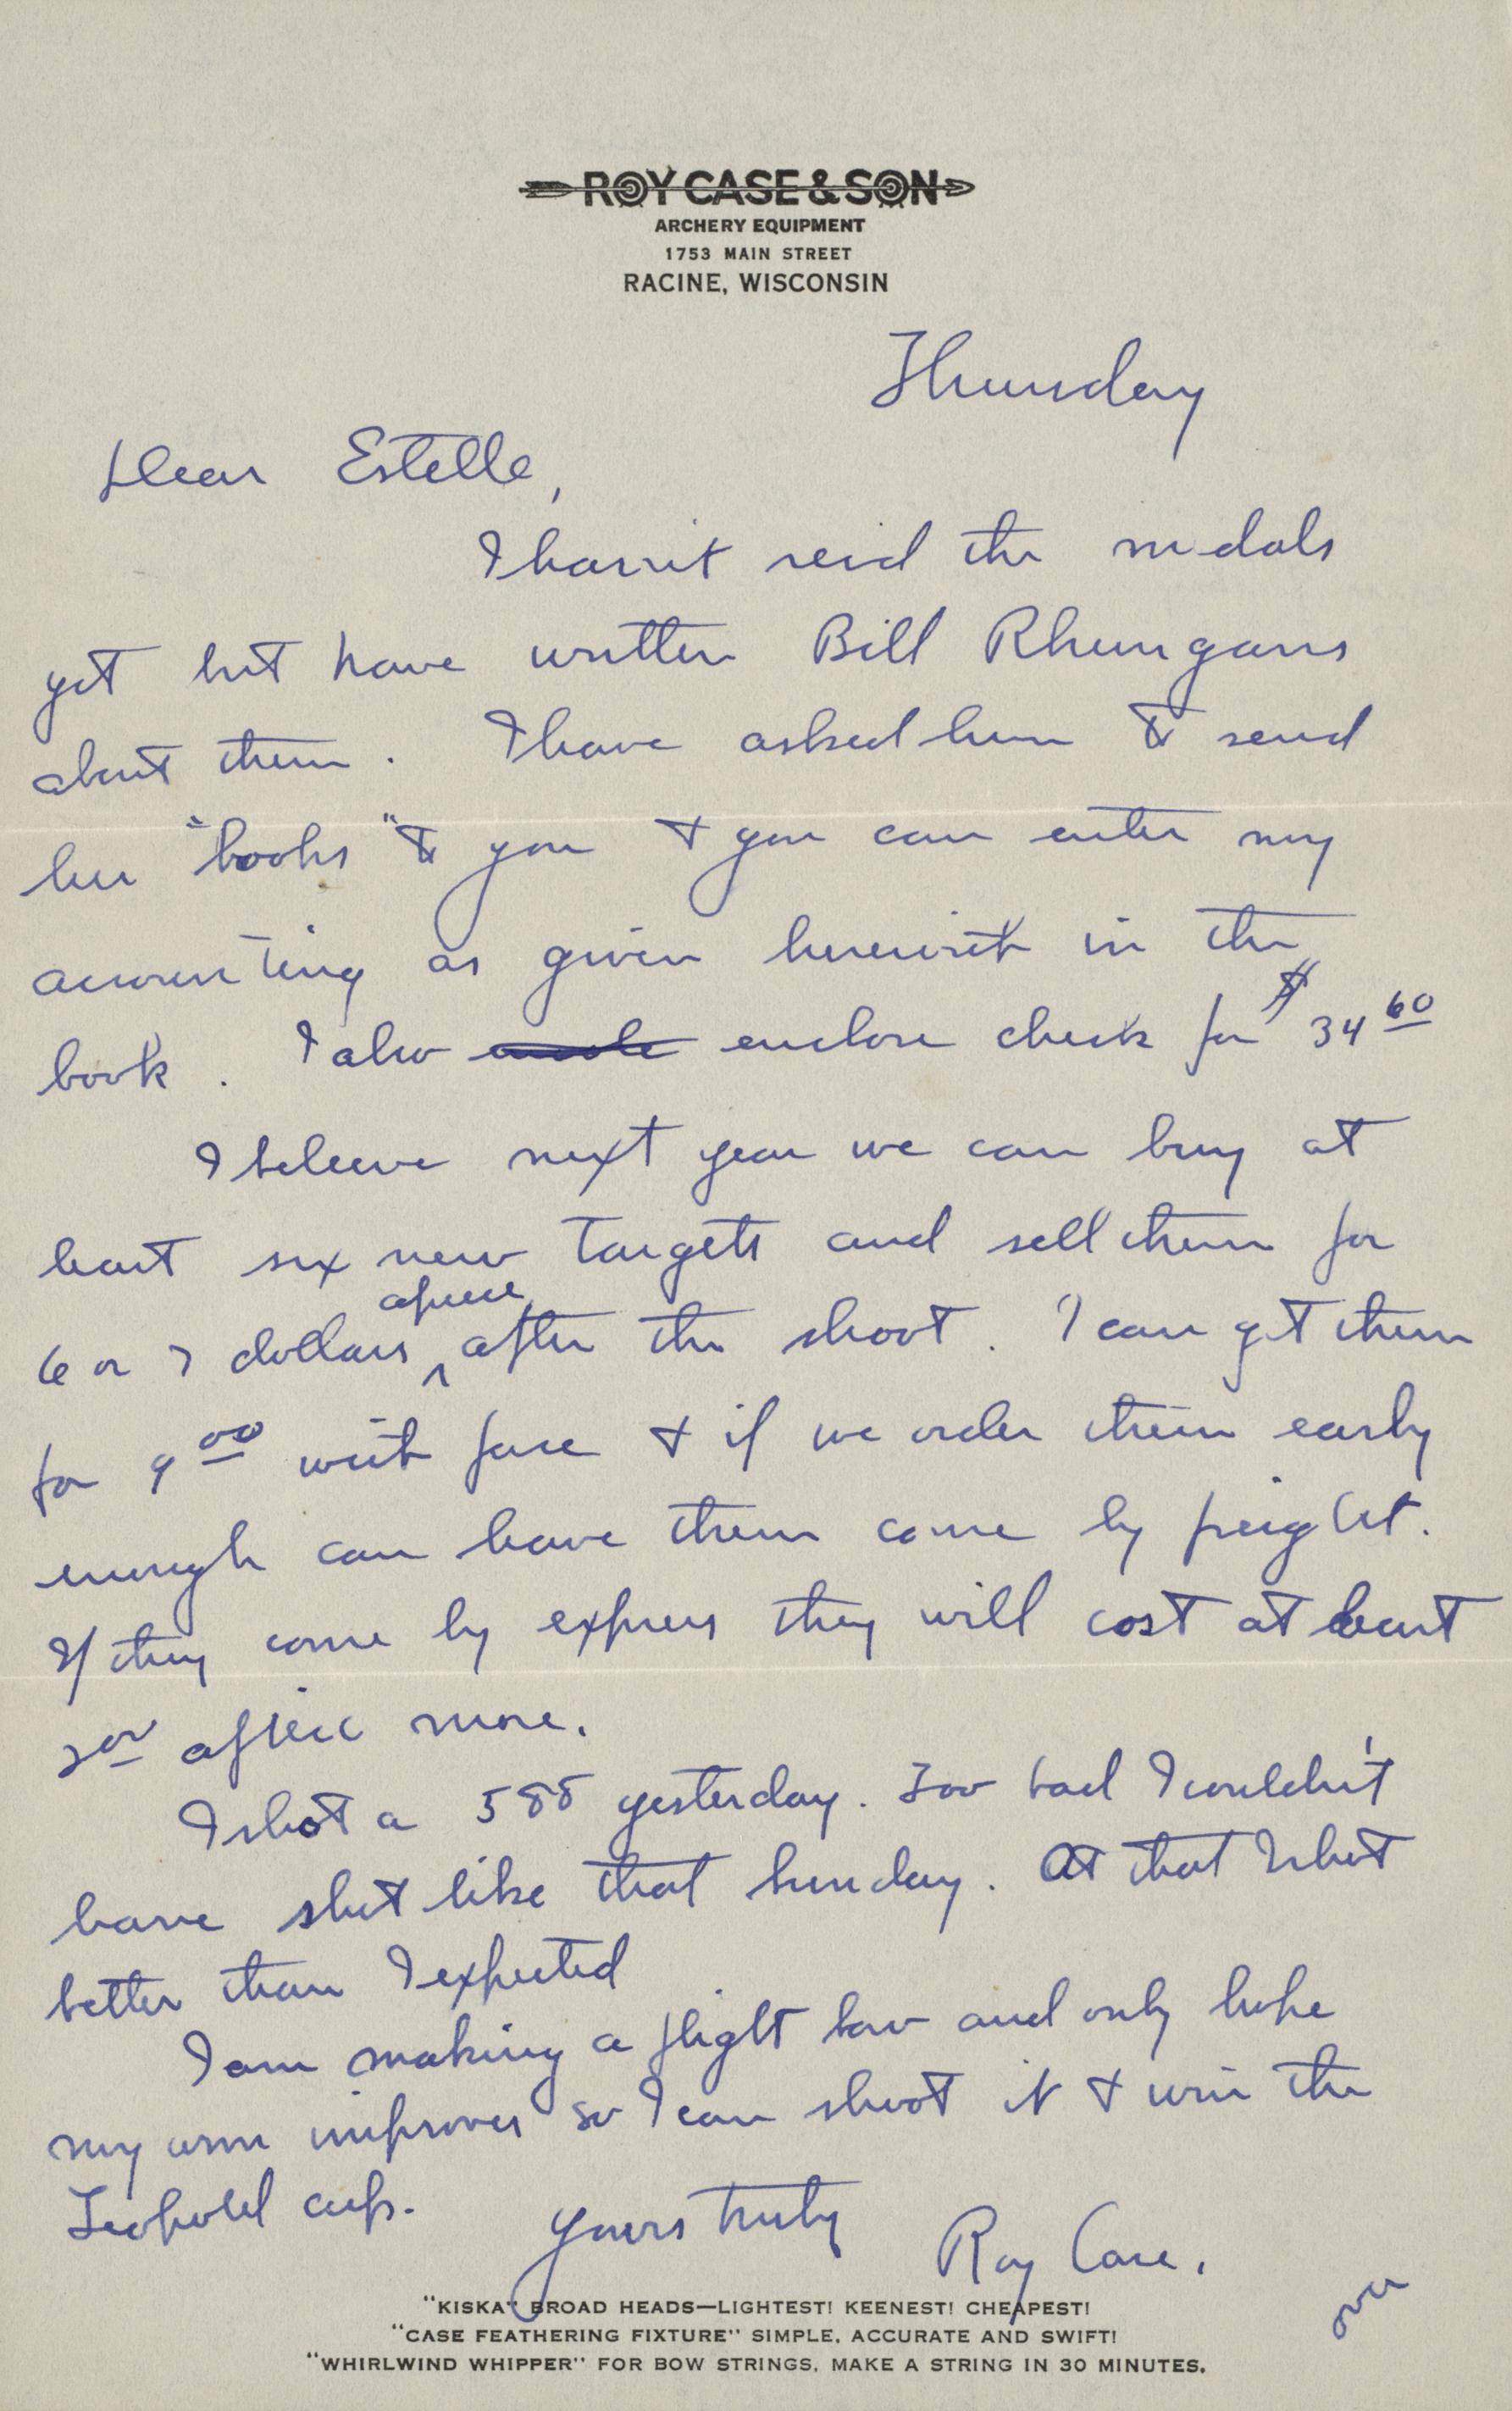 ROY CASE & SON
ARCHERY EQUIPMENT
1753 MAIN STREET
RACINE, WISCONSIN
Thursday
Dear Estelle,
I havn't recd the medals
yet but have written Bill Rheingans
about them. I have asked him to send
his "books" to you & you can enter my
accounting as given herewith in the
book. I also enclose check for $34 60
I beleeve next year we can buy at
least six new targets and sell them for
6 or 7 dollars apiece after the shoot. I can get them
for 9 00 with face & if we order them early
enough can have them come by freight.
If they come by express they will cost at least
apiece more.
I shot a 588 yesterday. Too bad I couldn't
have shot like that Sunday. At that I shot
better than I expected
I am making a flight bow and only hope
my arm improves so I can shoot it & win the
Leopold cup.
Yours truly Roy Case.
over
"KISKA" BROAD HEADS—LIGHTEST! KEENEST! CHEAPEST!
"CASE FEATHERING FIXTURE" SIMPLE, ACCURATE AND SWIFT!
"WHIRLWIND WHIPPER" FOR BOW STRINGS, MAKE A STRING IN 30 MINUTES.